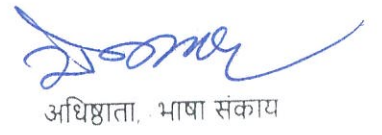 अधिष्ठाता, भाषा संकाय